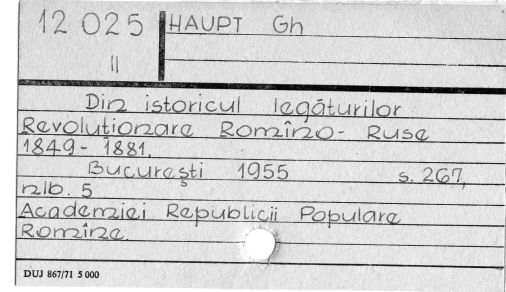 12 025
II
HAUPT Gh
Din istoricul legăturilor
Revoluționare Romîno- Ruse
1849- 1881.
București 1955 s. 267,
nlb. 5
Academiei Republicii Populare
Romîne.
DUJ 867/71 5 000